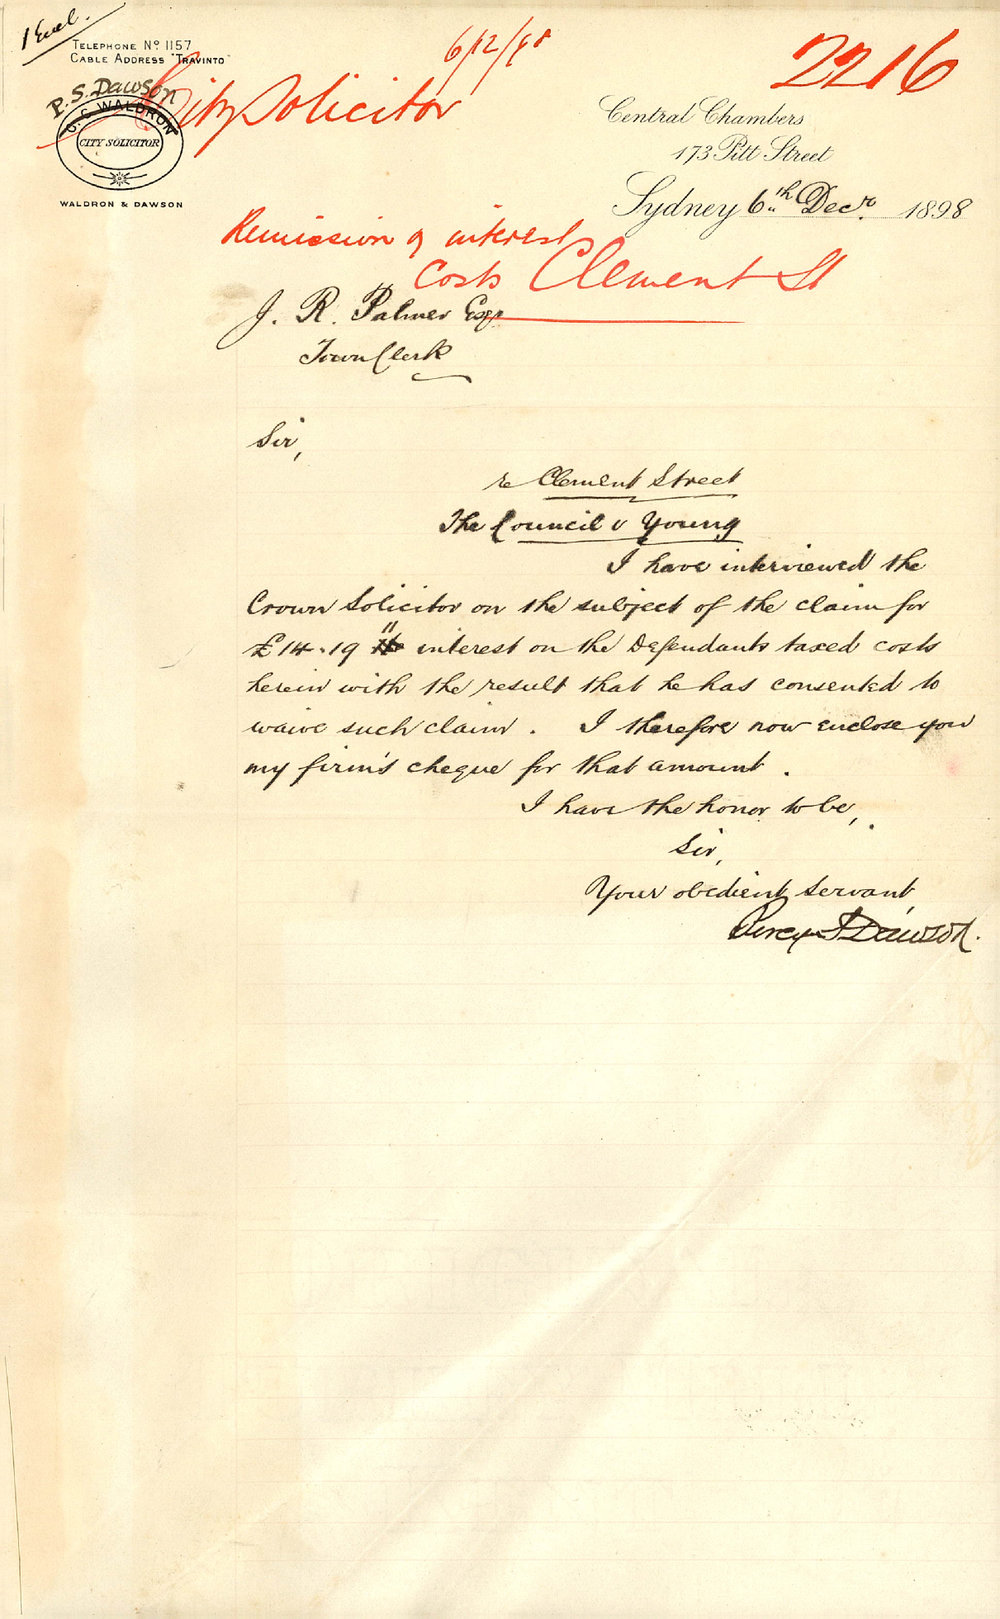 1 Encl.
TELEPHONE No 1157
CABLE ADDRESS "TRAVINTO"
P. S. Dawson
G. C. WALDRON
CITY SOLICITOR
WALDRON & DAWSON
6/12/98
2216
City Solicitor
Central Chambers
173 Pitt Street
Sydney 6th Decr. 1898
Remission of interest
Costs Clement St
J. R. Palmer Esqr
Town Clerk
Sir,
re Clement Street
The Council v Young
I have interviewed the
Crown Solicitor on the subject of the claim for
£14.19.11 interest on the Defendants taxed costs
herein with the result that he has consented to
waive such claim. I therefore now enclose you
my firm's cheque for that amount.
I have the honor to be,
Sir,
Your obedient servant,
Percy S Dawson.